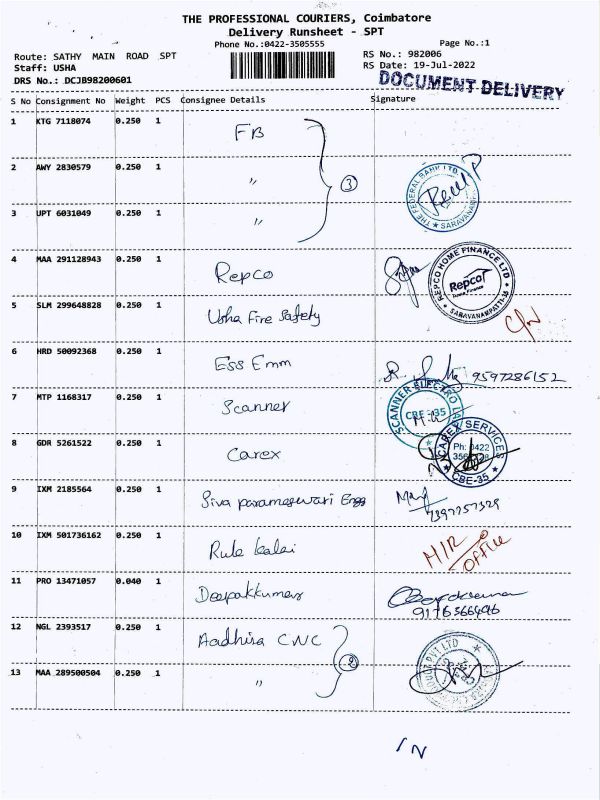 THE PROFESSIONAL COURIERS, Coimbatore
Delivery Runsheet - SPT
Phone No.:0422-3505555 Page No.:1
Route: SATHY MAIN ROAD SPT RS No.: 982006
Staff: USHA RS Date: 19-Jul-2022
DRS No.: DCJB98200601 DOCUMENT DELIVERY
S No Consignment No Weight PCS Consignee Details Signature
1 KTG 7118074 0.250 1 FB
2 AWY 2830579 0.250 1 " 3 THE FEDERAL BANK LTD. SARAVANAM
3 UPT 6031049 0.250 1 "
4 MAA 291128943 0.250 1 Repco REPCO HOME FINANCE LTD Repco Home Finance SARAVANAMPATTI-35
5 SLM 299648828 0.250 1 Usha Fire Safety
6 HRD 50092368 0.250 1 Ess Emm 9597286152
7 MTP 1168317 0.250 1 Scanner SCANNER ELECTRO CBE-35
8 GDR 5261522 0.250 1 Carex CAREX SERVICES Ph: 0422 CBE-35
9 IXM 2185564 0.250 1 Siva parameswari Engg
10 IXM 501736162 0.250 1 Rule kalai M/R OFFICE
11 PRO 13471057 0.040 1 Deepakkumar
12 NGL 2393517 0.250 1 Aadhira CNC 2 PVT LTD
13 MAA 289500504 0.250 1 "